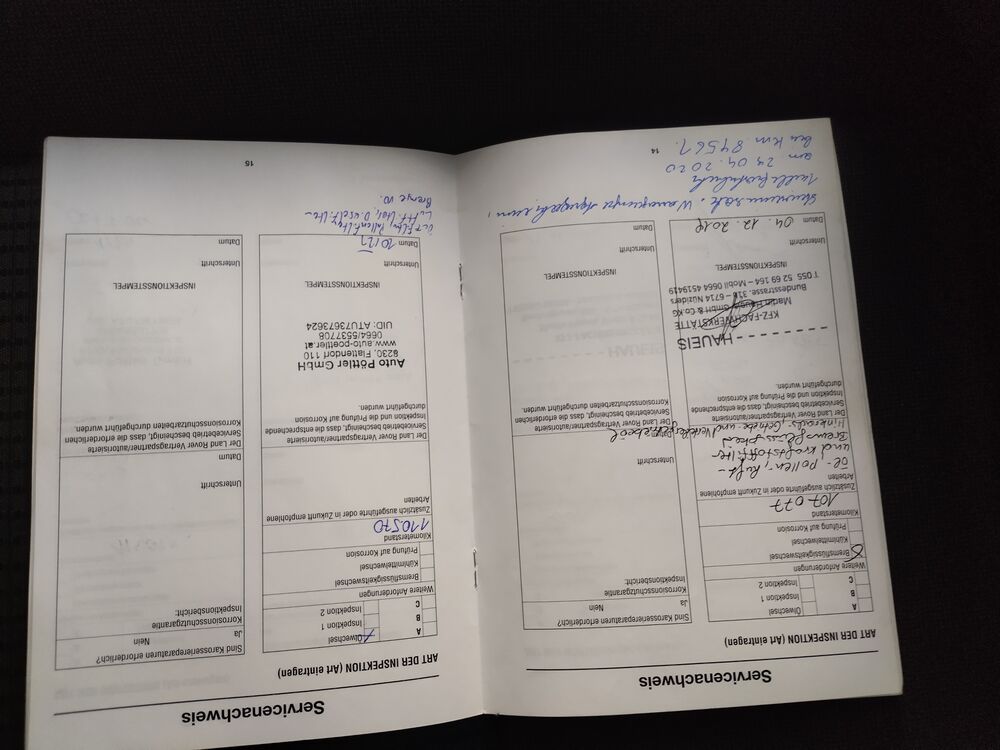 Servicenachweis
ART DER INSPEKTION (Art eintragen)
A Ölwechsel
B Inspektion 1
C Inspektion 2
Weitere Anforderungen
Bremsflüssigkeitswechsel
Kühlmittelwechsel
Prüfung auf Korrosion
Kilometerstand
107 077
Zusätzlich ausgeführte oder in Zukunft empfohlene
Arbeiten
Öl-Pollen-, Luft-
und Kraftstofffilter
Bremsflüssigkeit
Hinterachs-, Getriebe und Verteilergetriebeöl
Der Land Rover Vertragspartner/autorisierte
Servicebetrieb bescheinigt, dass die entsprechende
Inspektion und die Prüfung auf Korrosion
durchgeführt wurden.
HAUEIS
KFZ-FACHWERKSTÄTTE
Martin Haueis GmbH & Co.KG
Bundesstrasse. 316 – 6714 Nüziders
T 055 52 69 164 – Mobil 0664 4519419
INSPEKTIONSSTEMPEL
Unterschrift
04. 12. 2018
Datum
Sind Karosseriereparaturen erforderlich?
Ja Nein
Korrosionsschutzgarantie
Inspektionsbericht:
Unterschrift
Datum
Der Land Rover Vertragspartner/autorisierte
Servicebetrieb bescheinigt, dass die erforderlichen
Korrosionsschutzarbeiten durchgeführt wurden.
INSPEKTIONSSTEMPEL
Unterschrift
Datum
am 24.04.2020
bei km 84561.
14
Servicenachweis
ART DER INSPEKTION (Art eintragen)
A Ölwechsel
B Inspektion 1
C Inspektion 2
Weitere Anforderungen
Bremsflüssigkeitswechsel
Kühlmittelwechsel
Prüfung auf Korrosion
Kilometerstand
110.570
Zusätzlich ausgeführte oder in Zukunft empfohlene
Arbeiten
Der Land Rover Vertragspartner/autorisierte
Servicebetrieb bescheinigt, dass die entsprechende
Inspektion und die Prüfung auf Korrosion
durchgeführt wurden.
Auto Pöttler GmbH
8230, Flattendorf 110
www.auto-poettler.at
0664/5537708
UID: ATU73673624
INSPEKTIONSSTEMPEL
Unterschrift
10/21
Datum
Ölfilter, Pollenfilter
Luftfilter, Dieselfilter
Bremse vo.
Sind Karosseriereparaturen erforderlich?
Ja Nein
Korrosionsschutzgarantie
Inspektionsbericht:
Unterschrift
Datum
Der Land Rover Vertragspartner/autorisierte
Servicebetrieb bescheinigt, dass die erforderlichen
Korrosionsschutzarbeiten durchgeführt wurden.
INSPEKTIONSSTEMPEL
Unterschrift
Datum
15